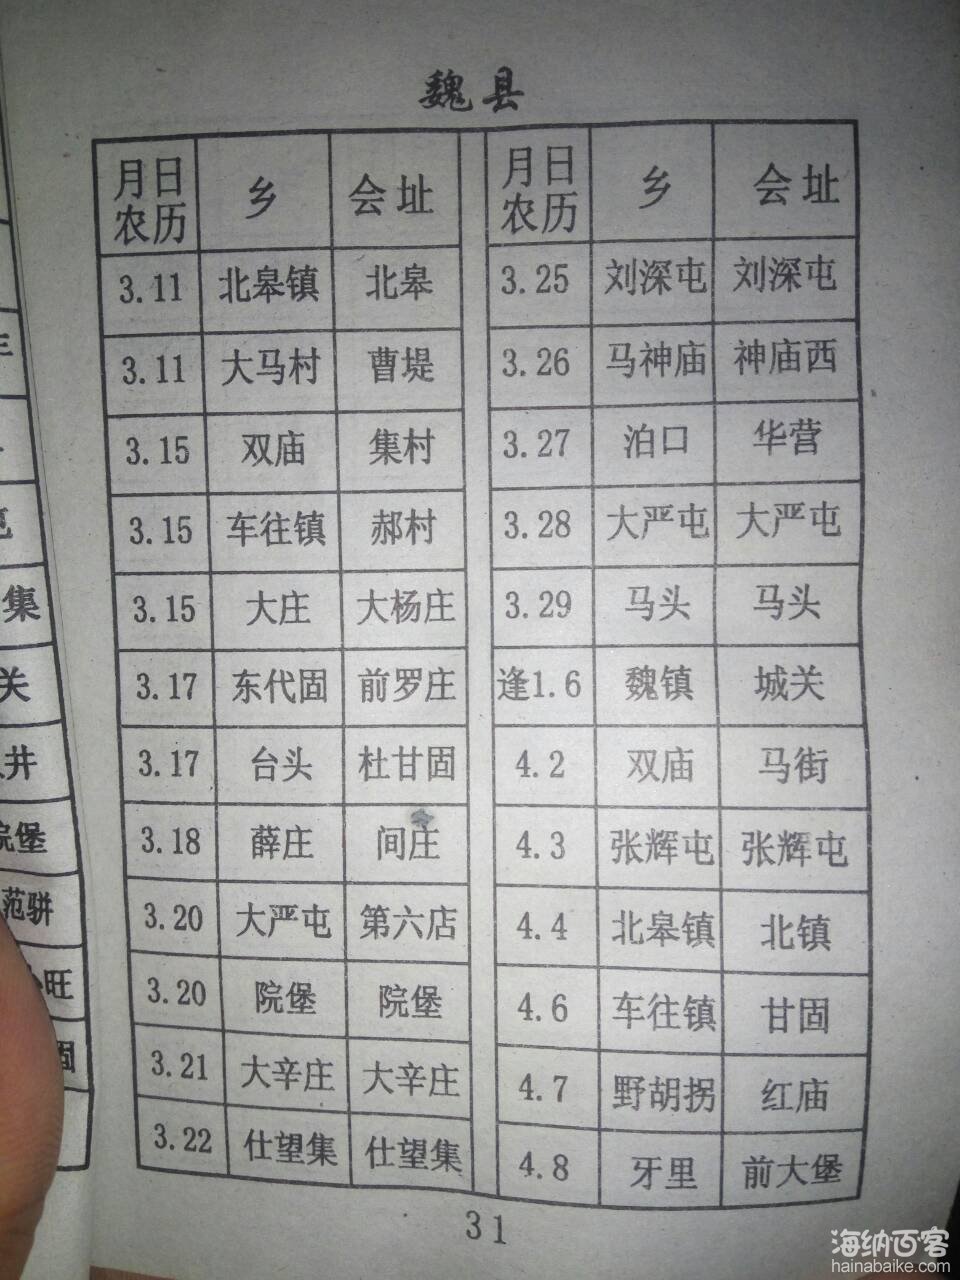 魏县
月日 乡 会址
农历
3.11 北皋镇 北皋
3.11 大马村 曹堤
3.15 双庙 集村
3.15 车往镇 郝村
3.15 大庄 大杨庄
3.17 东代固 前罗庄
3.17 台头 杜甘固
3.18 薛庄 间庄
3.20 大严屯 第六店
3.20 院堡 院堡
3.21 大辛庄 大辛庄
3.22 仕望集 仕望集
月日 乡 会址
农历
3.25 刘深屯 刘深屯
3.26 马神庙 神庙西
3.27 泊口 华营
3.28 大严屯 大严屯
3.29 马头 马头
逢1.6 魏镇 城关
4.2 双庙 马街
4.3 张辉屯 张辉屯
4.4 北皋镇 北镇
4.6 车往镇 甘固
4.7 野胡拐 红庙
4.8 牙里 前大堡
31
集
关
井
院堡
范骈
旺
固
海纳百客
hainabaike.com